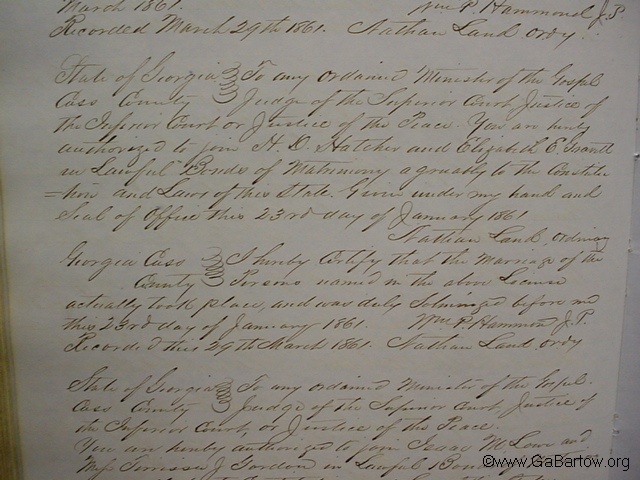 March 1861. Wm P. Hammond J.P.
Recorded March 29th 1861. Nathan Land, Ordy.
State of Georgia To any ordained Minister of the Gospel
Cass County Judge of the Superior Court, Justice of
the Inferior Court or Justice of the Peace. You are hereby
authorized to join H. D. Hatcher and Elizabeth E.
in Lawful Bonds of Matrimony agreeably to the Constitu
=tion and Laws of this State. Given under my hand and
Seal of Office this 23rd day of January 1861
Nathan Land, Ordinary
Georgia Cass I hereby Certify that the Marriage of the
County Persons named in the above License
actually took place, and was duly Solemnized before me
this 23rd day of January 1861. Wm P. Hammond J.P.
Recorded this 29th March 1861. Nathan Land, Ordy
State of Georgia To any ordained Minister of the Gospel.
Cass County Judge of the Superior Court, Justice of
the Inferior Court, or Justice of the Peace.
You are hereby authorized to join Isaac M. Low and
Miss J. Gordon in Lawful Bonds of
©www.GaBartow.org